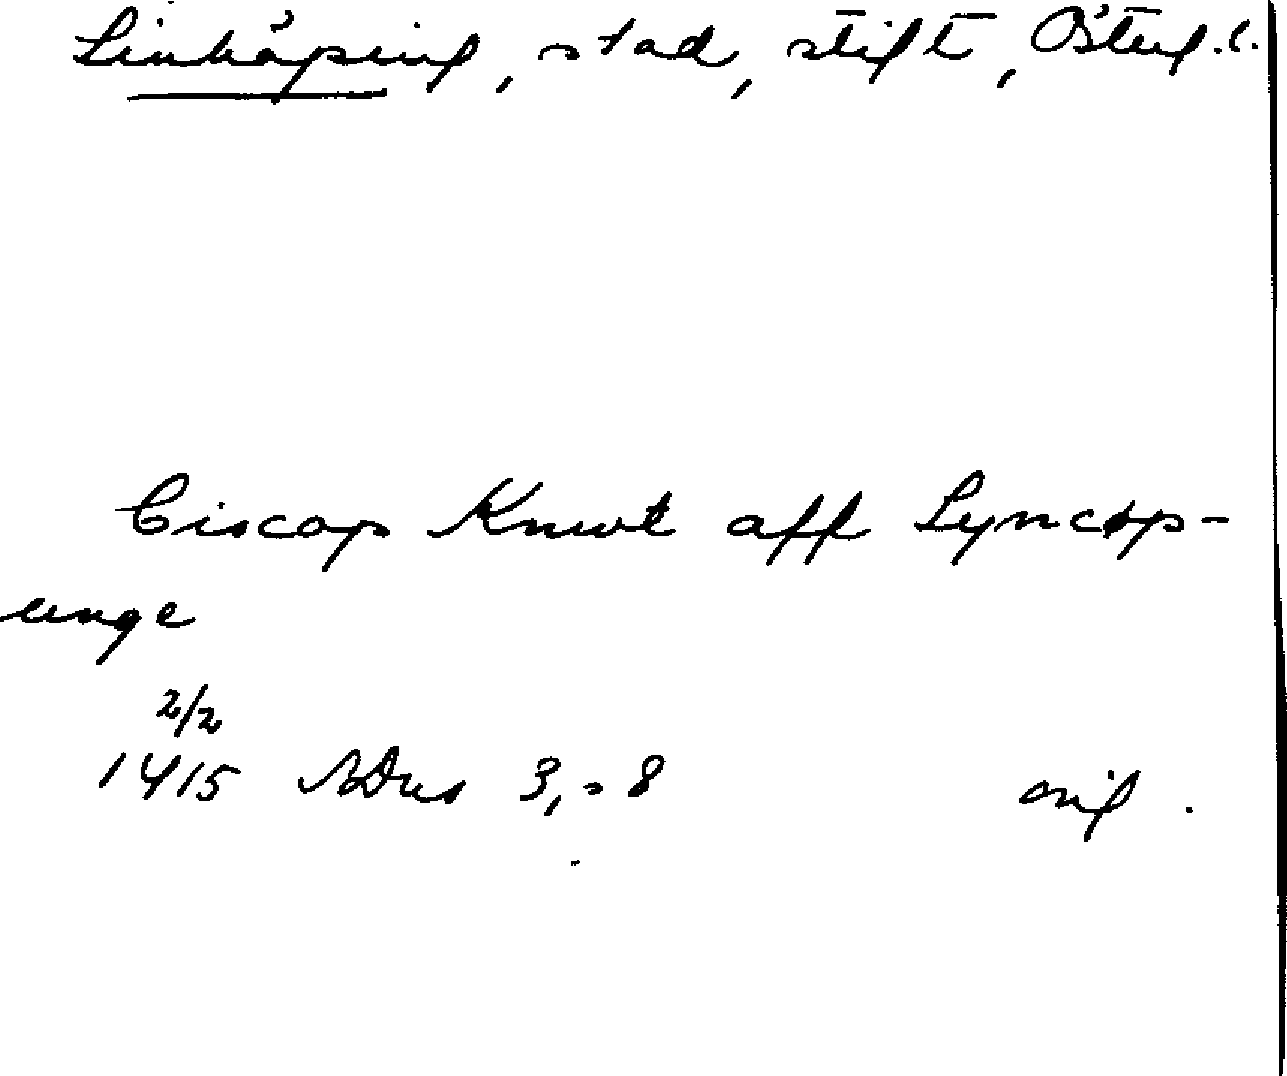 Linköping, stad, stift, Österg.l.
Biscop Knwt aff Lyncøp-
unge
2/2
1415 SDns 3, s 8 orig.